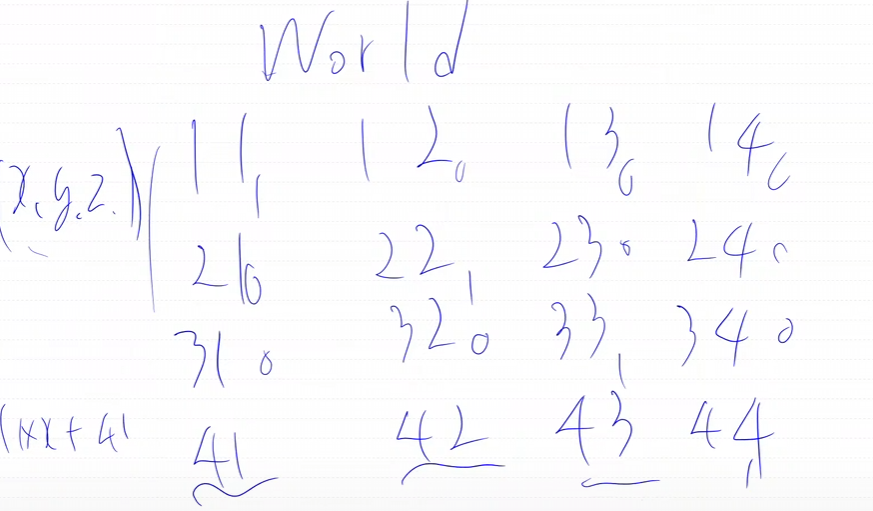 World
(x, y, z.) ( 11 1 12 0 13 0 14 0
21 0 22 1 23 0 24 0
31 0 32 0 33 1 34 0
41 42 43 44 1